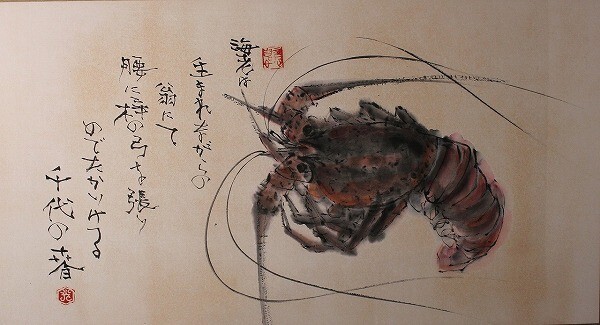 海老は
生まれながらの
翁にて
腰に梓の弓を張り
めでたかりける
千代の春